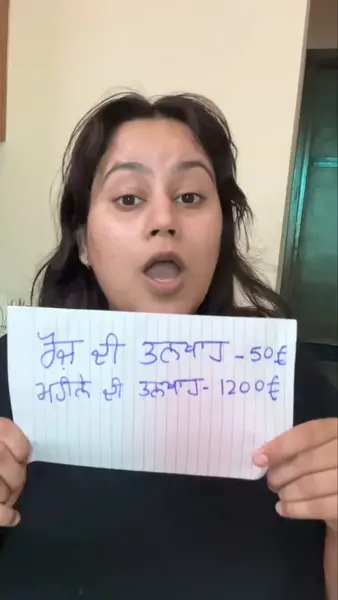 ਰੋਜ਼ ਦੀ ਤਨਖਾਹ - 50€
ਮਹੀਨੇ ਦੀ ਤਨਖਾਹ - 1200€